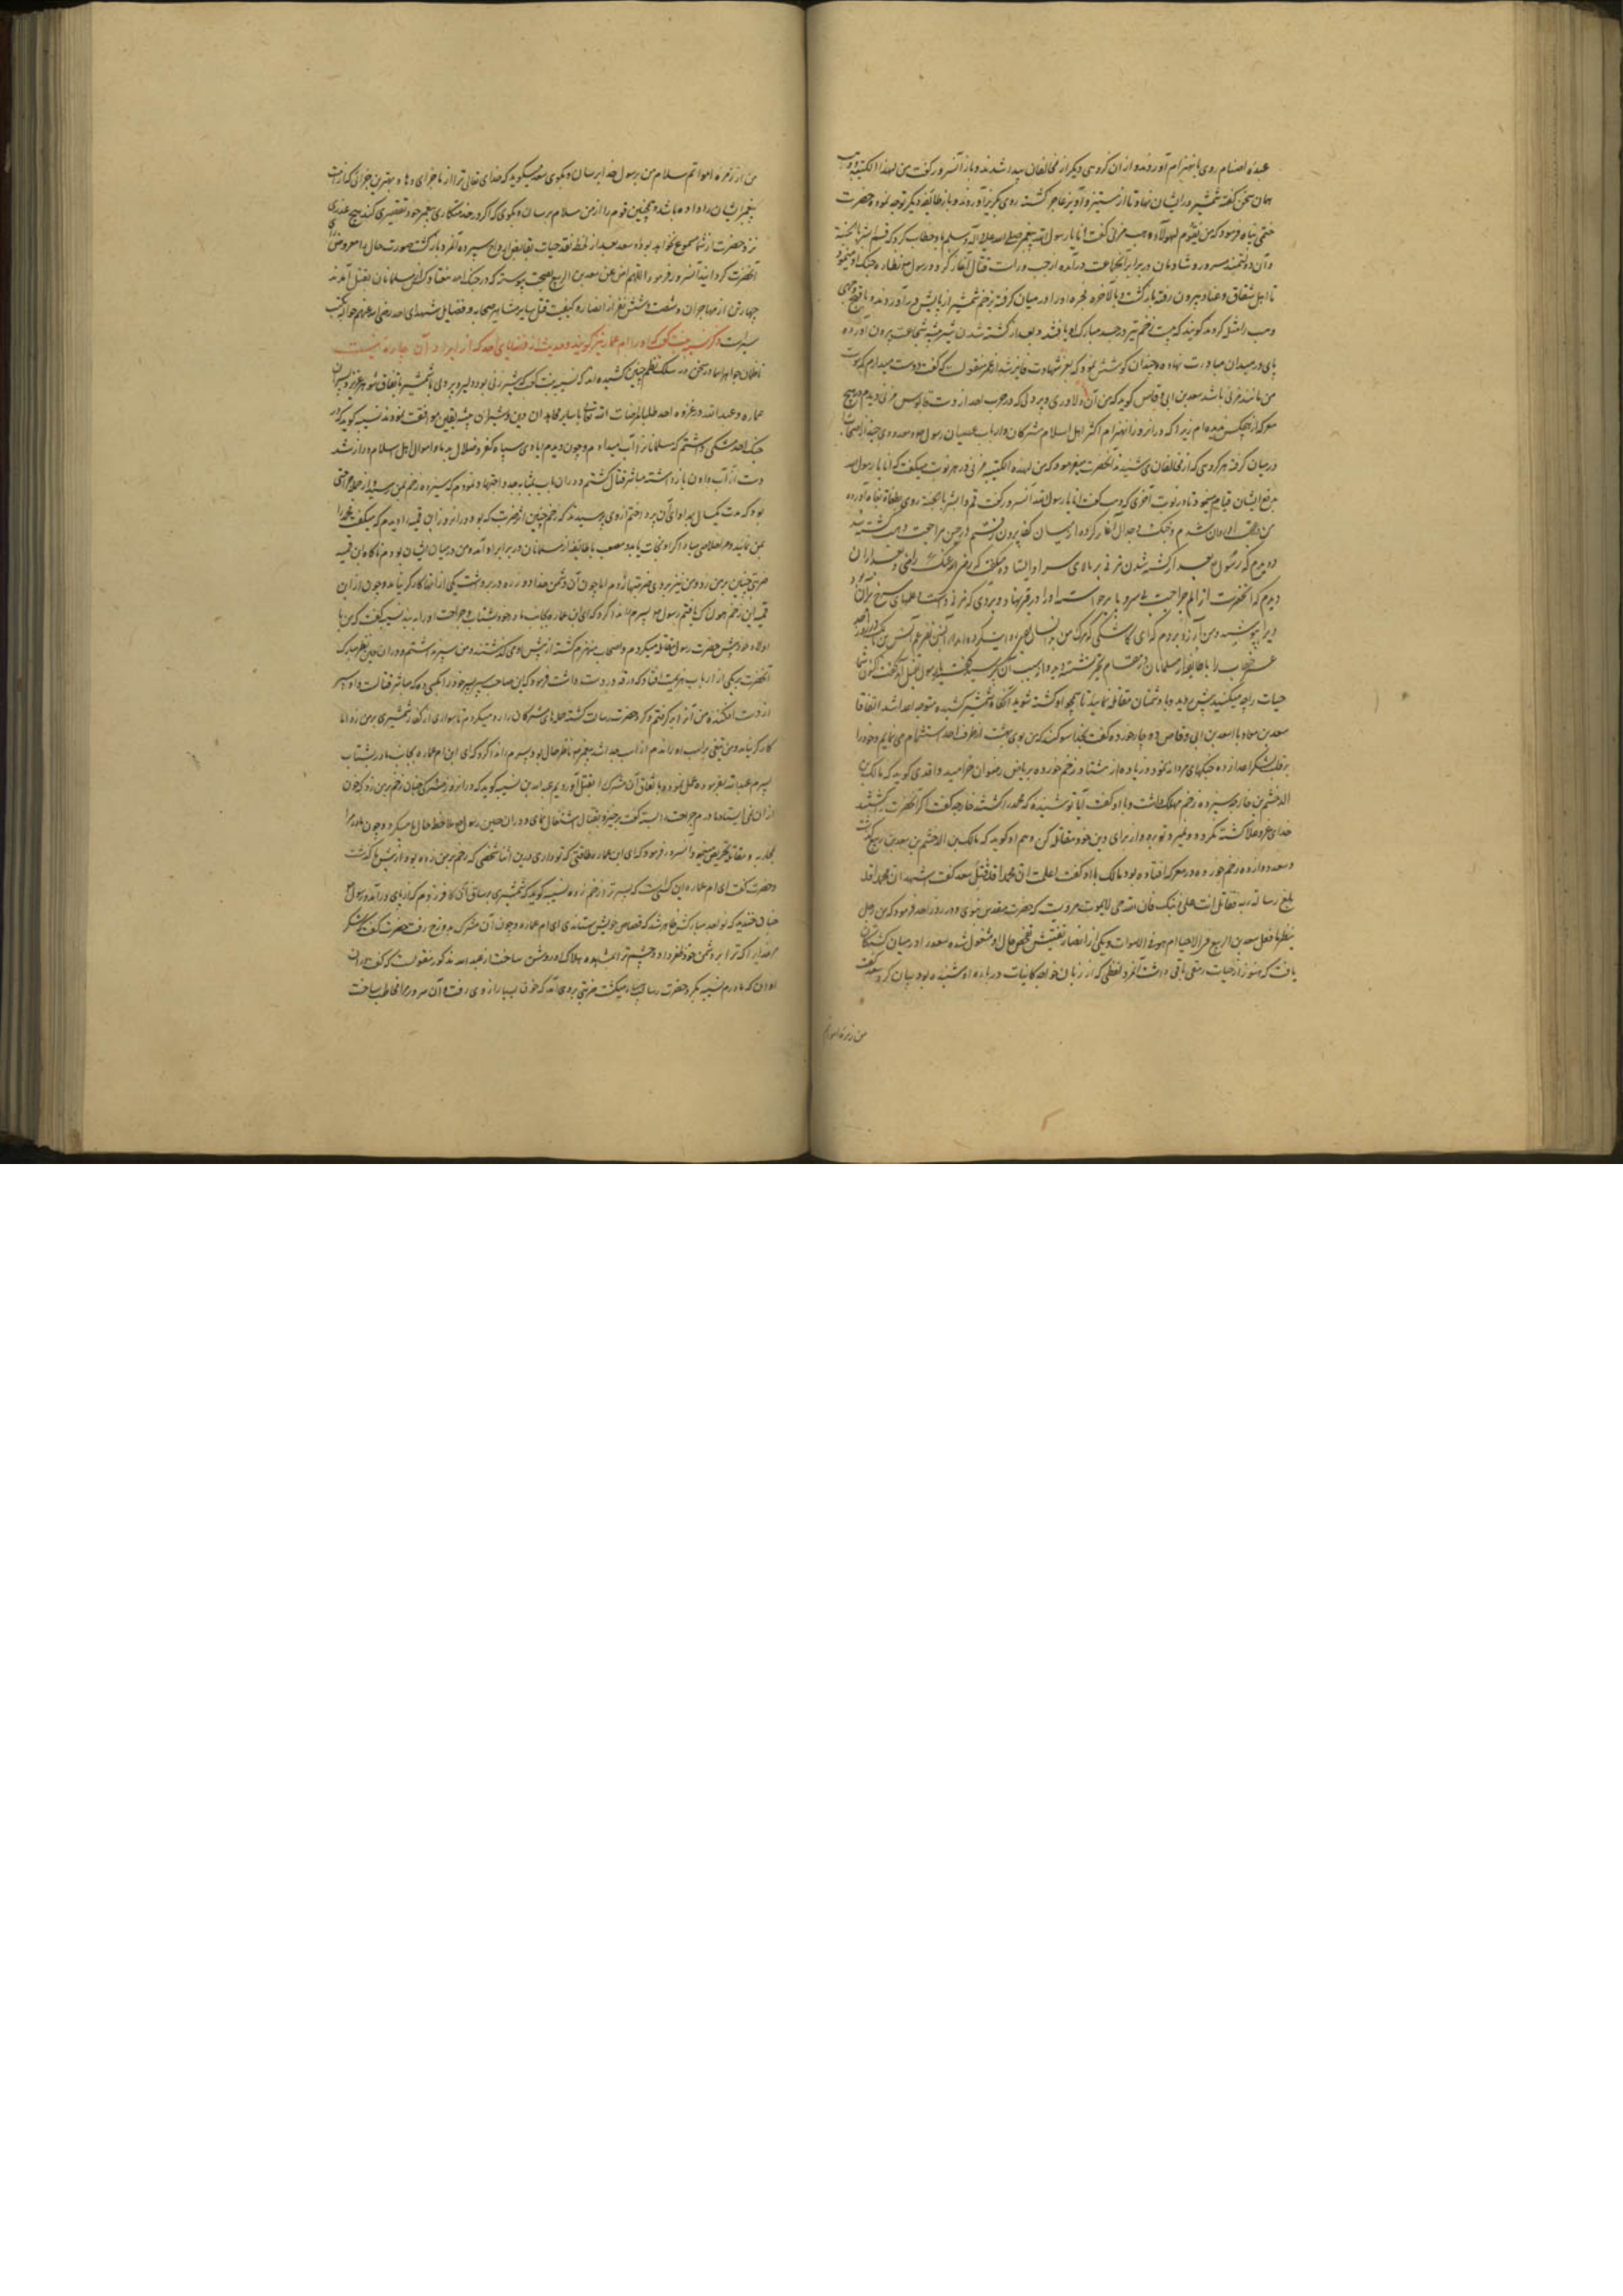 عبده اصنام روی بانهزام آوردند و ازان کروهی دیکر از مخالفان پیدا شدند و باز آنسرور کفت من لهذا الکتیبه وهب
همان سخن کفته شمشیر در ایشان نهاد تا از ستیز و آویز عاجز کشته روی بکریز آوردند و باز طایفه دیکر توجه نموده حضرت
ختمی پناه فرمود که من یقوم لهولاء وهب مزنی کفت انا یا رسول الله پیغمبر صلی الله علیه و آله وسلم باو خطاب کرد که قم ابشر بالجنة
و آن دولتمند مسرور و شادمان در برابر آنجماعت درآمده از چپ و راست قتال آغاز کرد و رسول نظاره جنک او مینمود
تا اهل شقاق و عناد بیرون رفته بازکشت و بالاخره او را در میان کرفته بزخم شمشیر از پایش درآوردند و باقبح وجهی
وهب را مثله کردند کویند که بیست زخم نیزه در جسد مبارک او یافتند و بعد از کشته شدن
پای در میدان مبادرت نهاده و چندان کوشش نمود که بعز شهادت فایز شد از عمر منقولست که کفت دوست میدارم که موت
من مانند مزنی باشد سعد بن ابی وقاص کوید که من آن دلاوری و پردلی که در حرب احد از وهب قابوس مزنی دیدم در هیچ
معرکه از هیچکس ندیده ام زیرا که در آنروز در انهزام اکثر اهل اسلام مشرکان و ارباب عصیان رسول و معدودی چند از اصحاب
در میان کرفته هر کروهی که از مخالفان می شنید آنحضرت میفرمود که من لهذه الکتیبه مزنی در هر نوبت میکفت که انا یا رسول الله
بدفع ایشان قیام مینمود تا در نوبت آخری که وهب کفت انا یا رسول الله آنسرور کفت قم و ابشر بالجنة روی
من در عقب او روان شدم و جنک و جدال آغاز کرده از میان کفار بیرون رفتم در حین مراجعت وهب کشته شد
و دیدم که رسول بعد از کشته شدن مزنی بر بالای سر او ایستاده میکفت که رضی الله عنک
دیدم که آنحضرت از الم جراحت او را در قبر نهاد و بردی که مزنی داشت و علمهای سرخ بر آن بود
ویرا پوشید و من آرزو بردم که ای کاشکی مرک من انس بن مالک در روز احد
عمر خطاب را با طایفه از مسلمانان در مقام تحیر نشسته دید و از سبب آن پرسید کفتند رسول بقتل آمد کفت اکنون شما
حیات را چه میکنید پیش روید و با دشمنان مقاتله نمایید تا همچو او کشته شوید آنکاه شمشیر کشیده متوجه اعدا شد اتفاقا
سعد بن معاذ یا سعد بن ابی وقاص ده چار خورده کفت بخدا سوکند که من بوی بهشت از طرف احد استشمام می نمایم و خود را
بر قلب لشکر اعدا زده جنکهای مردانه نمود و زیاده از هشتاد زخم خورده بریاض رضوان خرامید واقدی کوید که مالک بن
الدخشم بن خارجه سیزده زخم مهلک داشت و باو کفت آیا تو شنیده که محمد را کشتند خارجه کفت اکر آنحضرت کشته شد
خدای عز و علا کشته نکردد و نمیرد تو بردوار برای دین خود مقاتله کن و هم او کوید که مالک بن الدخشم بر سعد بن ربیع کذشت
و سعد دوازده زخم خورده در معرکه افتاده بود مالک با او کفت اعلمت ان محمدا قد قتل سعد کفت اشهد ان محمدا قد
بلغ رسالة ربه فقاتل انت علی دینک فان الله حی لا یموت مرویست که حضرت مقدس نبوی در روز احد فرمود که من رجل
ینظر ما فعل سعد بن الربیع فی الاحیاء ام هو فی الاموات و یکی از انصار بتفتیش و تفحص حال او مشغول شده سعد را در میان کشتکان
یافت که هنوز از حیات رمقی باقی داشت آنمرد لفظی که از زبان خواجه کاینات در باره او شنیده بود بیان کرد سعد کفت
من از زمره اموا
من از زمره امواتم سلام من برسول خدا برسان و بکوی سعد میکوید که خدای تعالی ترا از ما جزای دهاد بهترین جزائی که از امت
پیغمبر ایشان را داده باشد و همچنین قوم را از من سلام برسان و بکوی که اکر در خدمتکاری پیغمبر خود تقصیری کنید هیچ عذری
نزد حضرت از شما مسموع نخواهد بود و سعد بعد از لحظه نقد حیات بقابض ارواح سپرده آنمرد بازکشت صورت حال را معروض رای
آنحضرت کردانید آنسرور فرمود اللهم ارض عن سعد بن الربیع بصحت پیوسته که در جنک احد هفتاد کس از مسلمانان بقتل آمدند
چهار تن از مهاجران و شصت و شش نفر از انصار و کیفیت قتل سایر مشاهیر صحابه و فضایل شهدای احد رضی الله عنهم حواله بکتب
سیر است ذکر نسیبه بنت کعب که او را ام عماره نیز کویند و حدیث از قضایای احد که از ایراد آن چاره نیست
ناظمان جواهر اسما در سخن در سلک نظم چنین کشیده اند که نسیبه بنت کعب شیر زنی بود دلیر و پر دل با شمشیر باتفاق شوهر عزیز و پسران
عماره و عبد الله در غزوه احد طلبا لمرضات الله تعالی با سایر مجاهدان دین و شیران بیشه یقین موافقت نمودند نسیبه کوید که در
جنک احد مشکی داشتم که مسلمانانرا آب میدادم و چون دیدم ایادی سپاه کفر و ضلال بدما و اموال اهل اسلام دراز شد
دست از آب دادن بازداشته مباشر قتال کشتم و دران باب بمثابه جد و اجتهاد نمودم که سیزده زخم بمن رسید
بود که مدت یکسال بمداوای آن پرداختم از وی پرسیدند که زخم چنین از ضرب که بود در آنروز ابن قمیه را دیدم که میکفت محمد را
بمن نمائید و مرا خلاصی مباد اکر او نجات یابد و مصعب با طائفه از مسلمانان در برابر او آمده و من در میان ایشان بودم ناکاه ابن قمیه
ضربتی چنین بر من زد و من نیز بر وی ضربتها زدم اما چون آن دشمن خدا دو زره در بر داشت یکی از آنها کارکر نیامد و چون از ابن
قمیه این زخم هولناک یافتم رسول پسرم را ندا کرد که ای ابن عماره بجانب مادر خود بشتاب و جراحت او را به بند نسیبه کفت که من با
اولاد خود پیش حضرت رسول مقاتله میکردم و اصحاب منهزم کشته از پیش او می کذشتند و من سپر نداشتم و در ان حین نظر مبارک
آنحضرت بر یکی از ارباب هزیمت افتاد که درقه در دست داشت فرمود که این صاحب سپر سپر خود را بکسی ده که مباشر قتالست و او سپر
از دست افکنده من آنرا برکرفتم و کرد حضرت رسالت کشته حمله های مشرکان را رد میکردم تا سواری از کفار شمشیری بر من زد اما
کارکر نیامد و من تیغی بر اسب او راندم از اسب جدا شد پیغمبر ناظر حال بود پسرم را ندا کرد که ای ابن ام عماره بجانب مادر بشتاب
پسرم عبد الله بفرموده عمل نموده باتفاق آن مشرک را بقتل آوردیم عبد الله بن نسیبه کوید که در آنروز مشرکی چنان زخم بر من زد که خون
از ان نمی ایستاد مادرم جراحت مرا بسته کفت برخیز و بقتال اشتغال نمای و دران حین رسول ملاحظه حال ما میکرد و چون مادر مرا
بمحاربه و مقاتله تحریض مینمود آنسرور فرمود که ای ابن عماره طاقتی که تو داری درین اثنا شخصی که زخم بر من زده بود از پیش ما کذشت
و حضرت کفت ای ام عماره این کسیست که پسر ترا زخم زده نسیبه کوید که شمشیری بر ساق آن کافر زدم که از پای درآمد و رسول
چنان خندید که نواجذ مبارکش ظاهر شد که قصاص خویش ستاندی ای ام عماره و چون آن مشرک بدوزخ رفت حضرت کفت شکر
مر خدایرا که ترا بر دشمن خود ظفر داد و چشم ترا بمشاهده هلاک او روشن ساخت از عبد الله مذکور منقولست که کفت در آن
اوان که مادرم نسیبه بکرد حضرت رسالت میکشت ضربتی بر وی آمد که خون بسیار از وی رفت و آن سرور مرا مخاطب ساخت